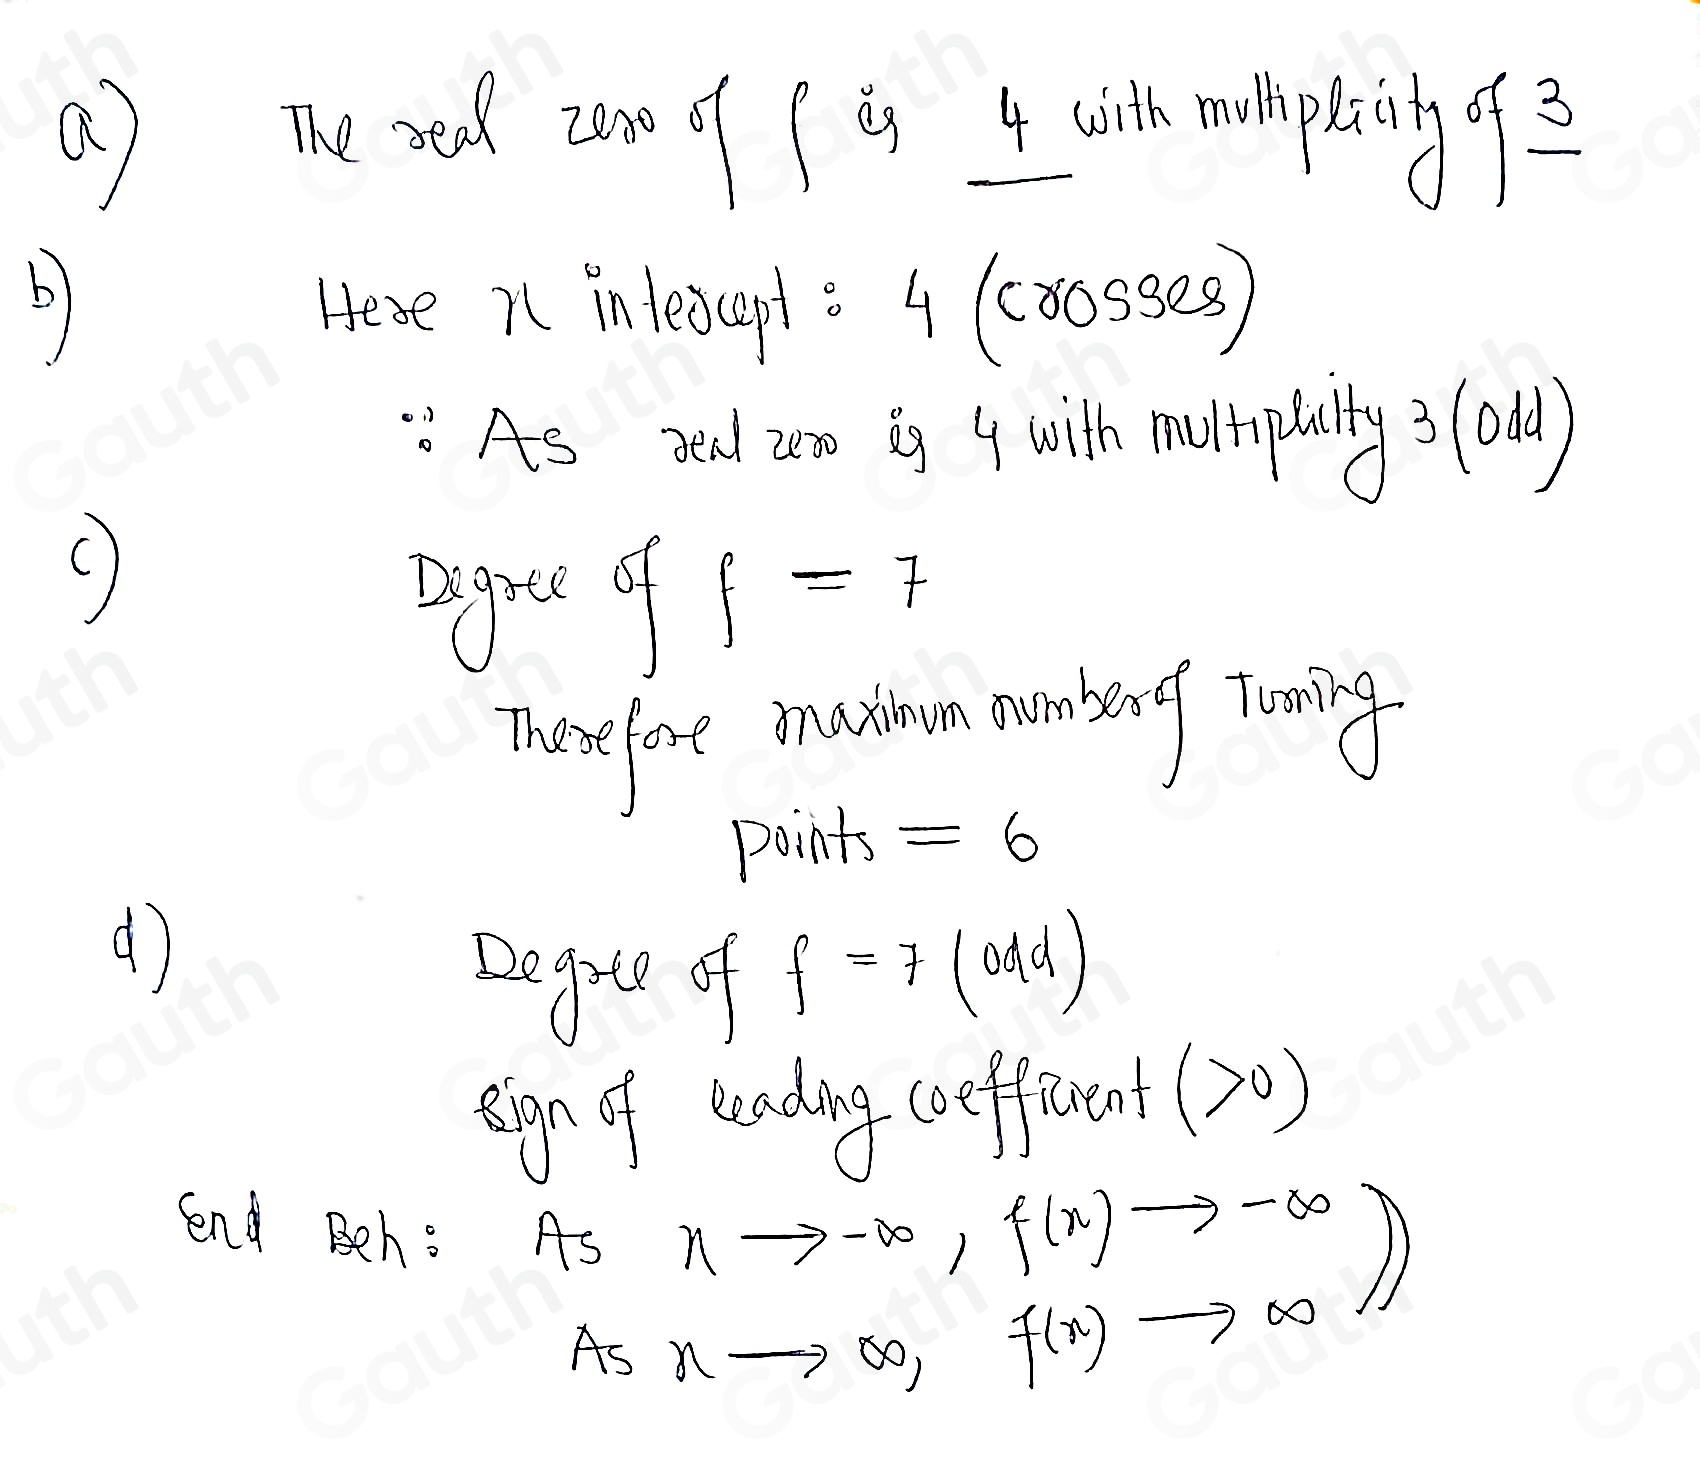 a) The real zero of f is 4 with multiplicity of 3
b) Here x intercept : 4 (crosses)
∵ As real zero is 4 with multiplicity 3 (odd)
c) Degree of f = 7
Therefore maximum number of Turning
points = 6
d) Degree of f = 7 (odd)
sign of leading coefficient (>0)
End Beh: As x → -∞, f(x) → -∞
As x → ∞, f(x) → ∞
Gauth